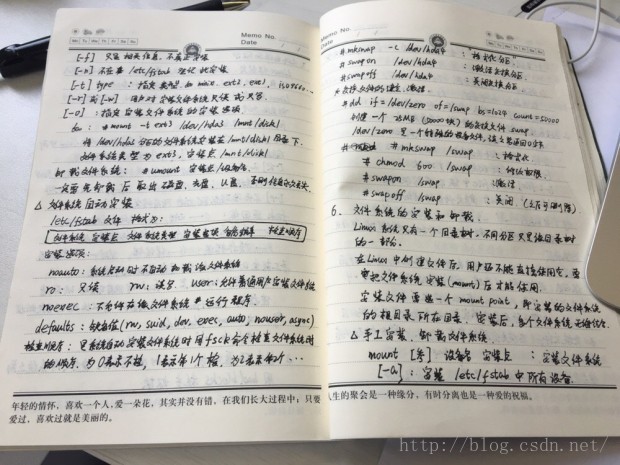 Memo No.
Date
[-f] 只显相关信息,不真正安装
[-n] 不在 /etc/fstab 登记此安装
[-t] type : 指定类型 如 minix. ext2, ext3, iso9660...
[-r]或[-w] 用户对安装文件系统只读或只写.
[-o] : 指定安装文件系统的安装选项.
如: # mount -t ext3 /dev/hda3 /mnt/disk1
将 /dev/hda3 分区的文件系统安装在/mnt/disk1目录下.
文件系统类型为ext3, 安装点/mnt/disk1
卸载文件系统: # umount 安装点/设备名.
一定要先卸载后取出磁盘、光盘、U盘,否则信息会丢失.
△ 文件系统自动安装
/etc/fstab 文件 格式为:
文件系统 安装点 文件系统类型 安装选项 检查顺序
安装选项:
noauto: 系统启动时不自动卸载该文件系统
ro: 只读 rw: 读写. user: 允许普通用户安装文件系统
noexec: 不允许在该文件系统中运行程序.
defaults: 缺省值(rw, suid, dev, exec, auto, nouser, async)
检查顺序: 是系统自动安装文件系统时用fsck命令检查文件系统时
的顺序. 为0表示不检, 1表示第1个检, 为2表示第2个...
年轻的情怀,喜欢一个人,爱一朵花,其实并没有错,在我们长大过程中,只要
爱过,喜欢过就是美丽的。
Memo No.
Date
# mkswap -c /dev/hda4 : 格式化分区.
# swapon /dev/hda4 : 激活交换分区.
# swapoff /dev/hda4 : 关闭交换分区.
* 交换文件的建立、激活:
# dd if=/dev/zero of=/swap bs=1024 count=50000
创建一个 (50000块) 的交换文件 swap.
/dev/zero 是一个特殊的设备文件, 读它总返回0字节
# mkswap /swap : 格式化
# chmod 600 /swap : 修改权限.
# swapon /swap : 激活
# swapoff /swap : 关闭
6. 文件系统的安装和卸载.
Linux 系统只有一个目录树, 不同分区只是该目录树
的一部分.
在Linux中创建文件后, 用户还不能直接使用它, 需
要把文件系统安装(mount)后才能使用.
安装文件需要一个 mount point, 即安装的文件系统
的根目录所在目录. 安装后, 各个文件系统
△ 手工安装、卸载文件系统
mount [参] 设备名 安装点 : 安装文件系统
[-a]: 安装 /etc/fstab 中所有设备.
人生的聚会是一种缘分,有时分离也是一种爱的祝福。
http://blog.csdn.net/